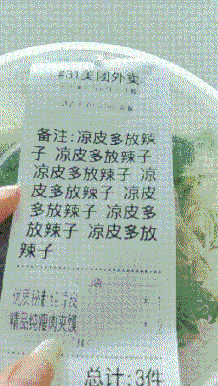 #31美团外卖
备注:凉皮多放辣
子 凉皮多放辣子
凉皮多放辣子 凉
皮多放辣子 凉皮
多放辣子 凉皮多
放辣子 凉皮多放
辣子
精品纯瘦肉夹馍
总计:3件